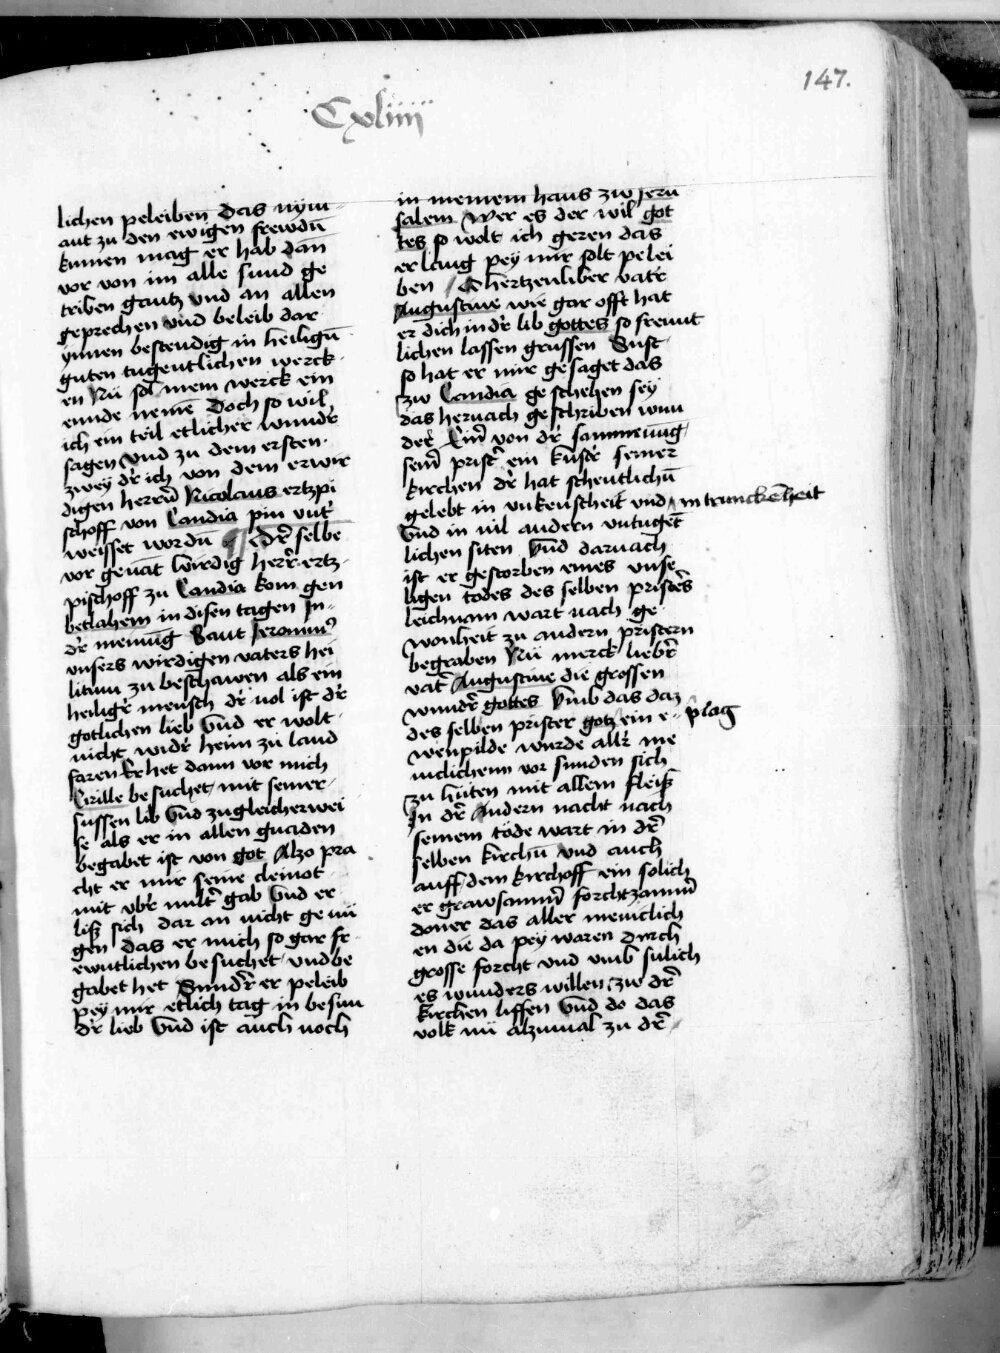 147.
Cxliiii
lichen peleiben das nym-
ant zu den ewigen frewdū
kumen mag er hab dan
vor von im alle sund ge
triben gantz vnd an allen
geprechen vnd beleib dar
ynnen bestendig in heiligū
guten tugentlichen werck-
en Nü sol mein werck ein
ennde nemē Doch so wil
ich ein teil etlicher wundr̄
sagen vnd zu dem ersten
zwey dr̄ ich von dem erwir
digen herrū Nicolaus ertzpi
schoff von Candia pin vnt̄
weisset wordū ¶ Dr̄ selbe
vor genāt wirdig herr̄ ertz-
pischoff zu Candia kom gen
betlahem in disen tagen In-
dr̄ meinūg Sant Jeronimꝰ
vnsers wirdigen vaters hei
litum zu beschawen als ein
heiligr̄ mensch dr̄ uol ist dr̄
gotlichen lieb Vnd er wolt
nicht widr̄ heim zü land
faren Er het dann vor mich
Cirille besuchet mit seiner
sussen lib Vnd zugleicherwei
se als er in allen gnaden
begabet ist von got Alzo pra
cht er mir seine cleinot
mit vbr̄ milt̄ gab Vnd er
liß sich dar an nicht ge nü
gen das er mich so gar fr-
ewntlichen besuchet vnd be
gabet het Sundr̄ er peleib
pey mir etlich tag in besun
dr̄ lieb Vnd ist auch noch
in meinem haus zw Jeru
salem Wer es der wil got
tes so wolt ich geren das
er lang pey mir solt pelei
ben O hertzenliber vatr̄
Augustine wie gar offt hat
er dich in dr̄ lib gottes so freunt
lichen lassen grussen Sust-
so hat er mir gesaget das
zw Candia geschehen sey
das hernach geschriben wun
der Ein̄ von dr̄ sammenūg
sein̄ prist̄ ein kustr̄ seiner
kirchen dr̄ hat scheutlichū
gelebt in vnkeuscheit vnd in trunckenheit
Vnd in uil andern vntuget̄
lichen siten Vnd darnach
ist er gestorben eines vnse
ligen todes des selben pristēs
leichnam wart nach ge
wonheit zu andern pristern
begraben Nü merck liebr̄
vatr̄ Augustine die grossen
wundr̄ gottes Vmb das daz
des selben prister gotz ein e- plag
wenpilde wurde allr̄ me
niclichenn vor sunden sich
zu hüten mit allem fleiß
In dr̄ Andern nacht nach
seinem töde wart in dr̄
selben kirchū vnd auch
auff dem kirchoff ein solich
er grawsamm̄ forchtzamm̄
doner das aller meniclich
en die da pey waren durch
grosse forcht vnd vmb sulich
es wunders willen zw dr̄
kirchen liffen Vnd do das
volk nü alzumal zu dr̄